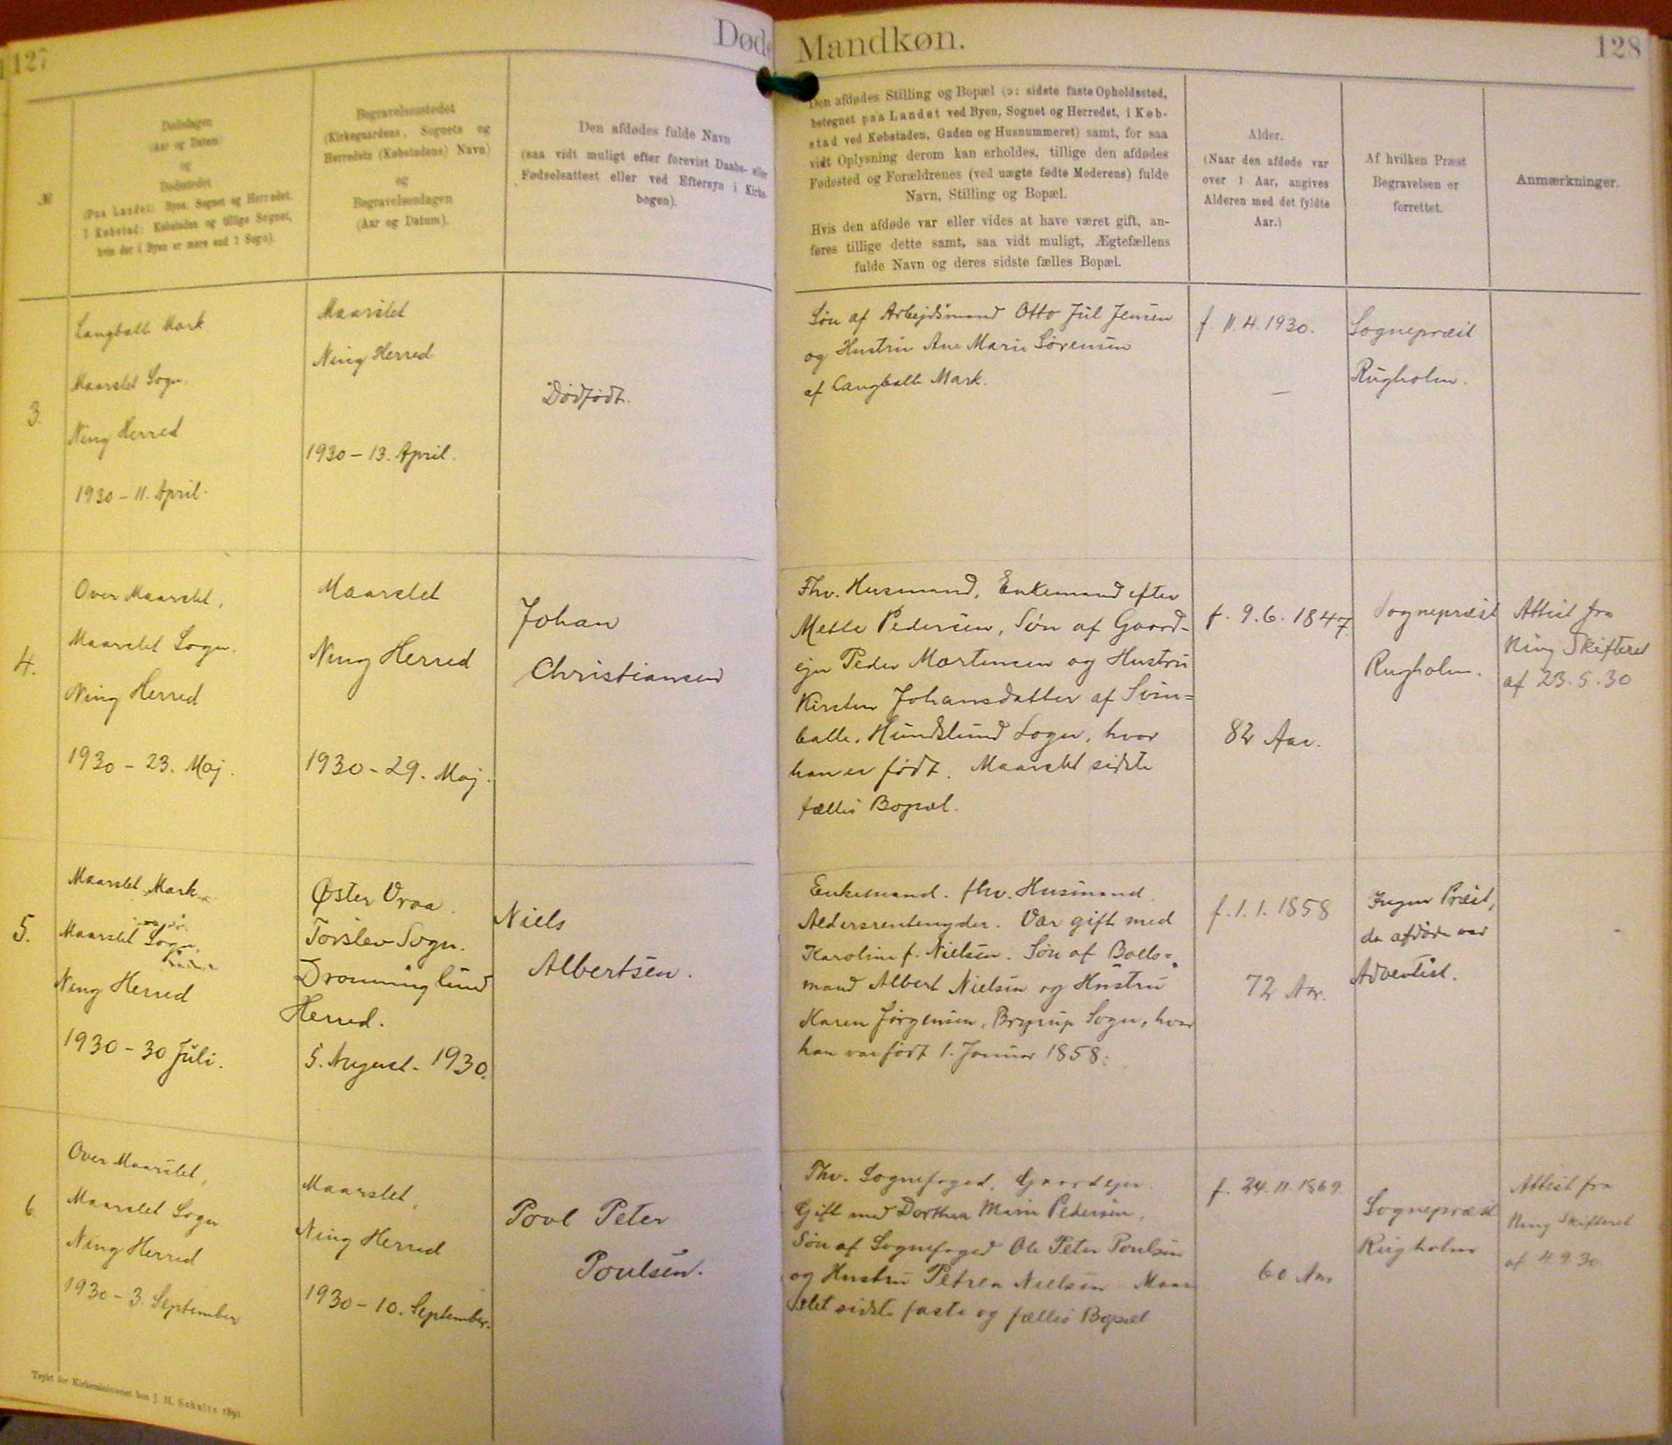 127
Døde
Mandkøn.
128
№
Dødsdagen
(Aar og Datum)
og
Dødsstedet
(Paa Landet: Byen, Sognet og Herredet.
I Købstad: Købstaden og tillige Sognet,
hvis der i Byen er mere end 1 Sogn).
Begravelsesstedet
(Kirkegaardens, Sognets og
Herredets (Købstadens) Navn)
og
Begravelsesdagen
(Aar og Datum).
Den afdødes fulde Navn
(saa vidt muligt efter forevist Daabs- eller
Fødselsattest eller ved Eftersyn i Kirke-
bogen).
Den afdødes Stilling og Bopæl (ɔ: sidste faste Opholdssted,
betegnet paa Landet ved Byen, Sognet og Herredet, i Køb-
stad ved Købstaden, Gaden og Husnummeret) samt, for saa
vidt Oplysning derom kan erholdes, tillige den afdødes
Fødested og Forældrenes (ved uægte fødte Moderens) fulde
Navn, Stilling og Bopæl.
Hvis den afdøde var eller vides at have været gift, an-
føres tillige dette samt, saa vidt muligt, Ægtefællens
fulde Navn og deres sidste fælles Bopæl.
Alder.
(Naar den afdøde var
over 1 Aar, angives
Alderen med det fyldte
Aar.)
Af hvilken Præst
Begravelsen er
forrettet.
Anmærkninger.
3.
Langballe Mark
Maarslet Sogn.
Ning Herred
1930 - 11. April.
Maarslet
Ning Herred
1930 - 13. April.
Dødfødt.
Søn af Arbejdsmand Otto Jul Jensen
og Hustru Ane Marie Sørensen
af Langballe Mark.
f. 11.4.1930.
—
Sognepræst
Rugholm.
4.
Over Maarslet,
Maarslet Sogn.
Ning Herred
1930 - 23. Maj.
Maarslet
Ning Herred
1930 - 29. Maj.
Johan
Christiansen
Fhv. Husmand, Enkemand efter
Mette Pedersen, Søn af Gaard-
ejer Peder Mortensen og Hustru
Kirsten Johansdatter af Svin=
balle, Hundslund Sogn, hvor
han er født. Maarslet sidste
fælles Bopæl.
f. 9.6.1847.
82 Aar.
Sognepræst
Rugholm.
Attest fra
Ning Skifteret
af 23.5.30
5.
Maarslet Mark
Maarslet Sogn,
Ning Herred
1930 - 30 Juli.
Øster Vraa.
Torslev Sogn.
Dronninglund
Herred.
5. August - 1930.
Niels
Albertsen.
Enkemand. fhv. Husmand.
Aldersrentenyder. Var gift med
Karoline f. Nielsen. Søn af Boels=
mand Albert Nielsen og Hustru
Karen Jørgensen, Bryrup Sogn, hvor
han var født 1. Januar 1858.
f. 1.1.1858
72 Aar.
Ingen Præst,
da afdøde var
Adventist.
6.
Over Maarslet,
Maarslet Sogn
Ning Herred
1930 - 3. September
Maarslet,
Ning Herred
1930 - 10. September.
Povl Peter
Poulsen.
Fhv. Sognefoged, Gaardejer.
Gift med Dorthea Marie Pedersen,
Søn af Sognefoged Ole Peter Poulsen
og Hustru Petrea Nielsen Maar
slet sidste faste og fælles Bopæl
f. 24.11.1869
60 Aar
Sognepræst
Rugholm
Attest fra
Ning Skifteret
af 4.9.30.
Trykt for Kirkeministeriet hos J. H. Schultz 1891.